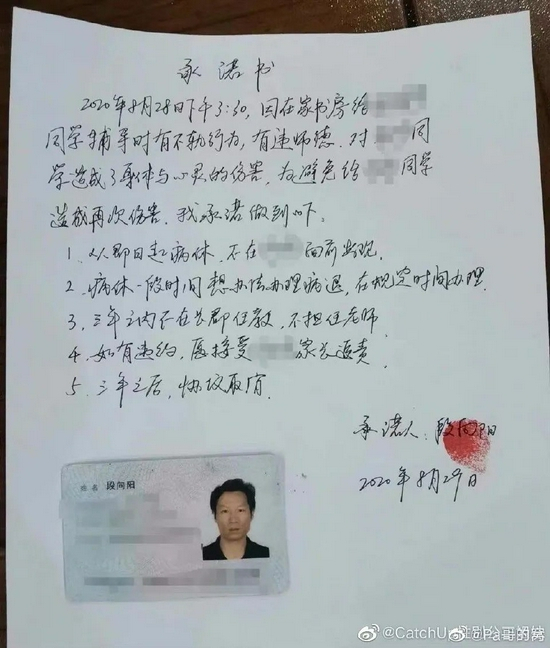 承诺书
2020年8月28日下午3:30,因在家书房给
同学辅导时有不轨行为,有违师德.对 同
学造成了身体与心灵的伤害,为避免给 同学
造成再次伤害.我承诺做到以下:
1、从即日起病休.不在 面前出现.
2、病休一段时间想办法办理病退,在规定时间办理.
3、三年之内不在长郡任教,不担任老师
4、如有违约,愿接受 家长追责
5、三年之后,协议取消.
承诺人:段向阳
2020年8月29日
姓名 段向阳
@CatchUp
@Pa哥的窝